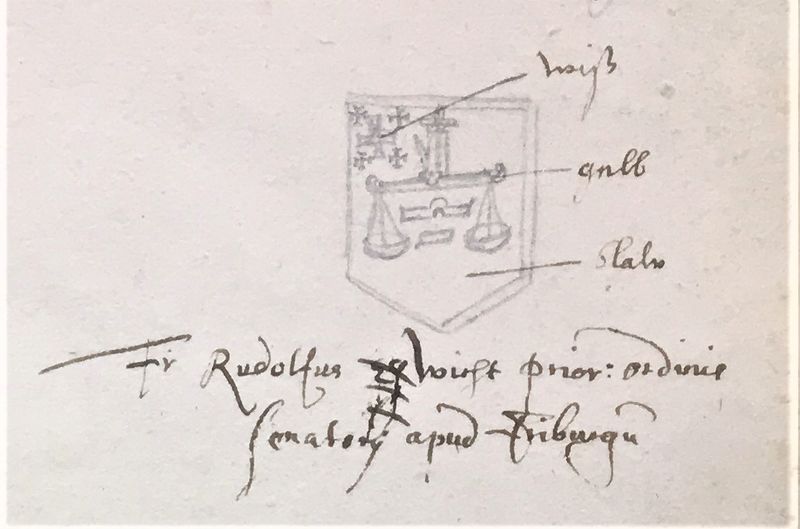 wiß
gelb
blaw
Fr Rudolfus Wicht prior: ordinis
senatorij apud Friburgū